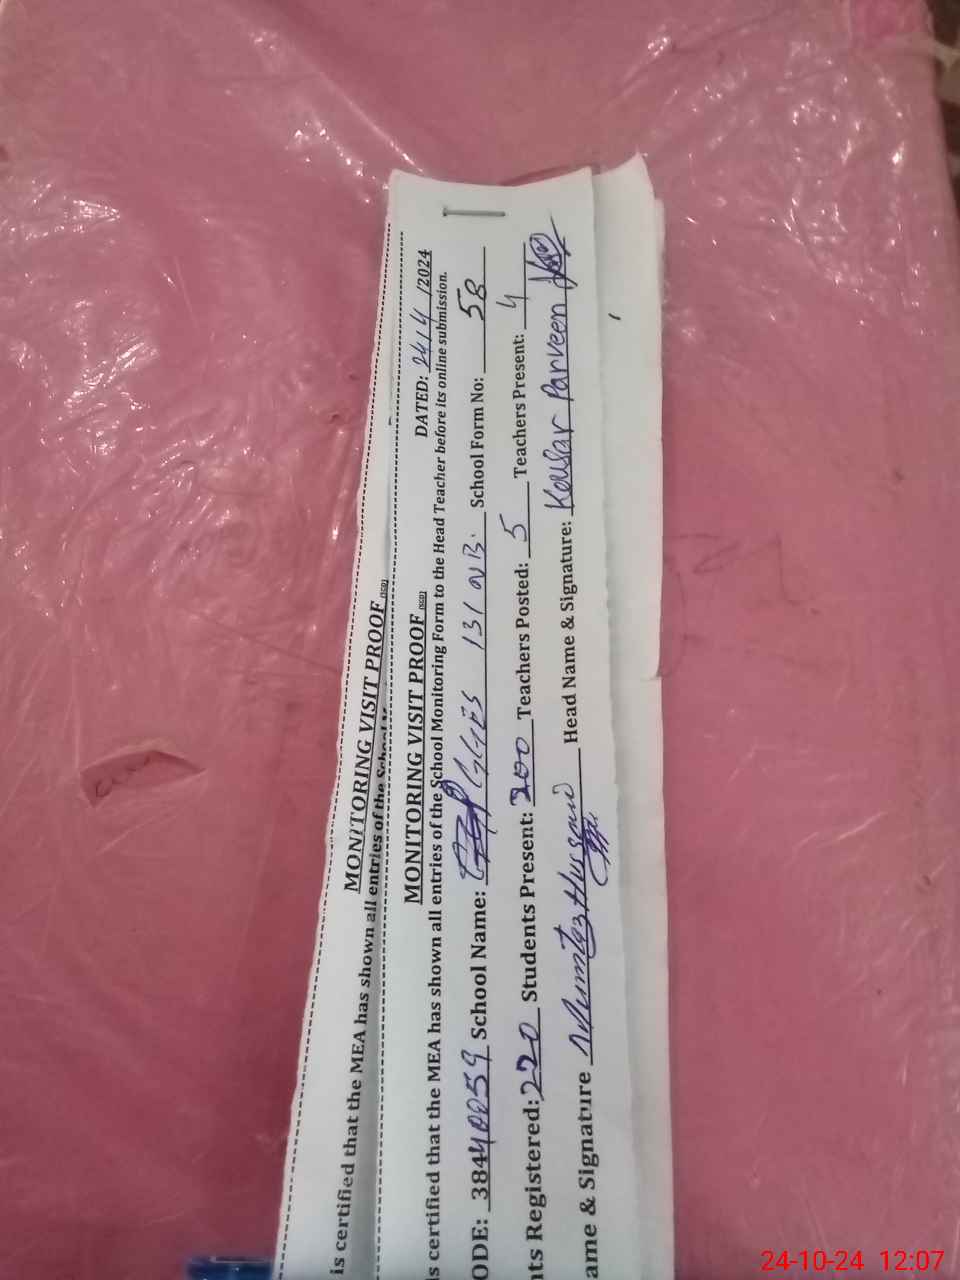 MONITORING VISIT PROOF (SGD)
is certified that the MEA has shown all entries of the School
MONITORING VISIT PROOF (SGD)
DATED: 24/4/2024
is certified that the MEA has shown all entries of the School Monitoring Form to the Head Teacher before its online submission.
ODE: 38440059 School Name: GGES 131 NB. School Form No: 58
nts Registered: 220 Students Present: 200 Teachers Posted: 5 Teachers Present: 4
ame & Signature Mumtaz Hussain Head Name & Signature: Kousar Parveen
24-10-24 12:07